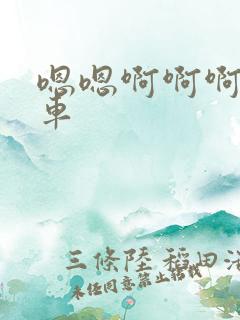 嗯嗯啊啊啊
車
三條陸 稻田浩
未任同意禁止轉載